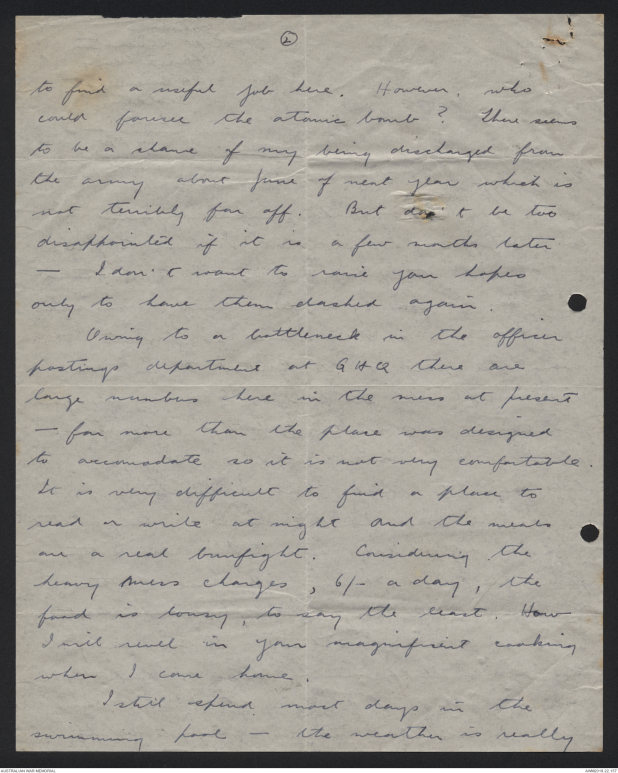 2
to find a useful job here. However, who
could foresee the atomic bomb? There seems
to be a chance of my being discharged from
the army about June of next year which is
not terribly far off. But don't be too
disappointed if it is a few months later
— I don't want to raise your hopes
only to have them dashed again.
Owing to a bottleneck in the officer
postings department at GHQ there are
large numbers here in the mess at present
— far more than the place was designed
to accomodate so it is not very comfortable.
It is very difficult to find a place to
read or write at night and the meals
are a real bunfight. Considering the
heavy mess charges, 6/- a day, the
food is lousy, to say the least. How
I will revel in your magnificent cooking
when I come home.
I still spend most days in the
swimming pool — the weather is really
AUSTRALIAN WAR MEMORIAL
AWM2019.22.157